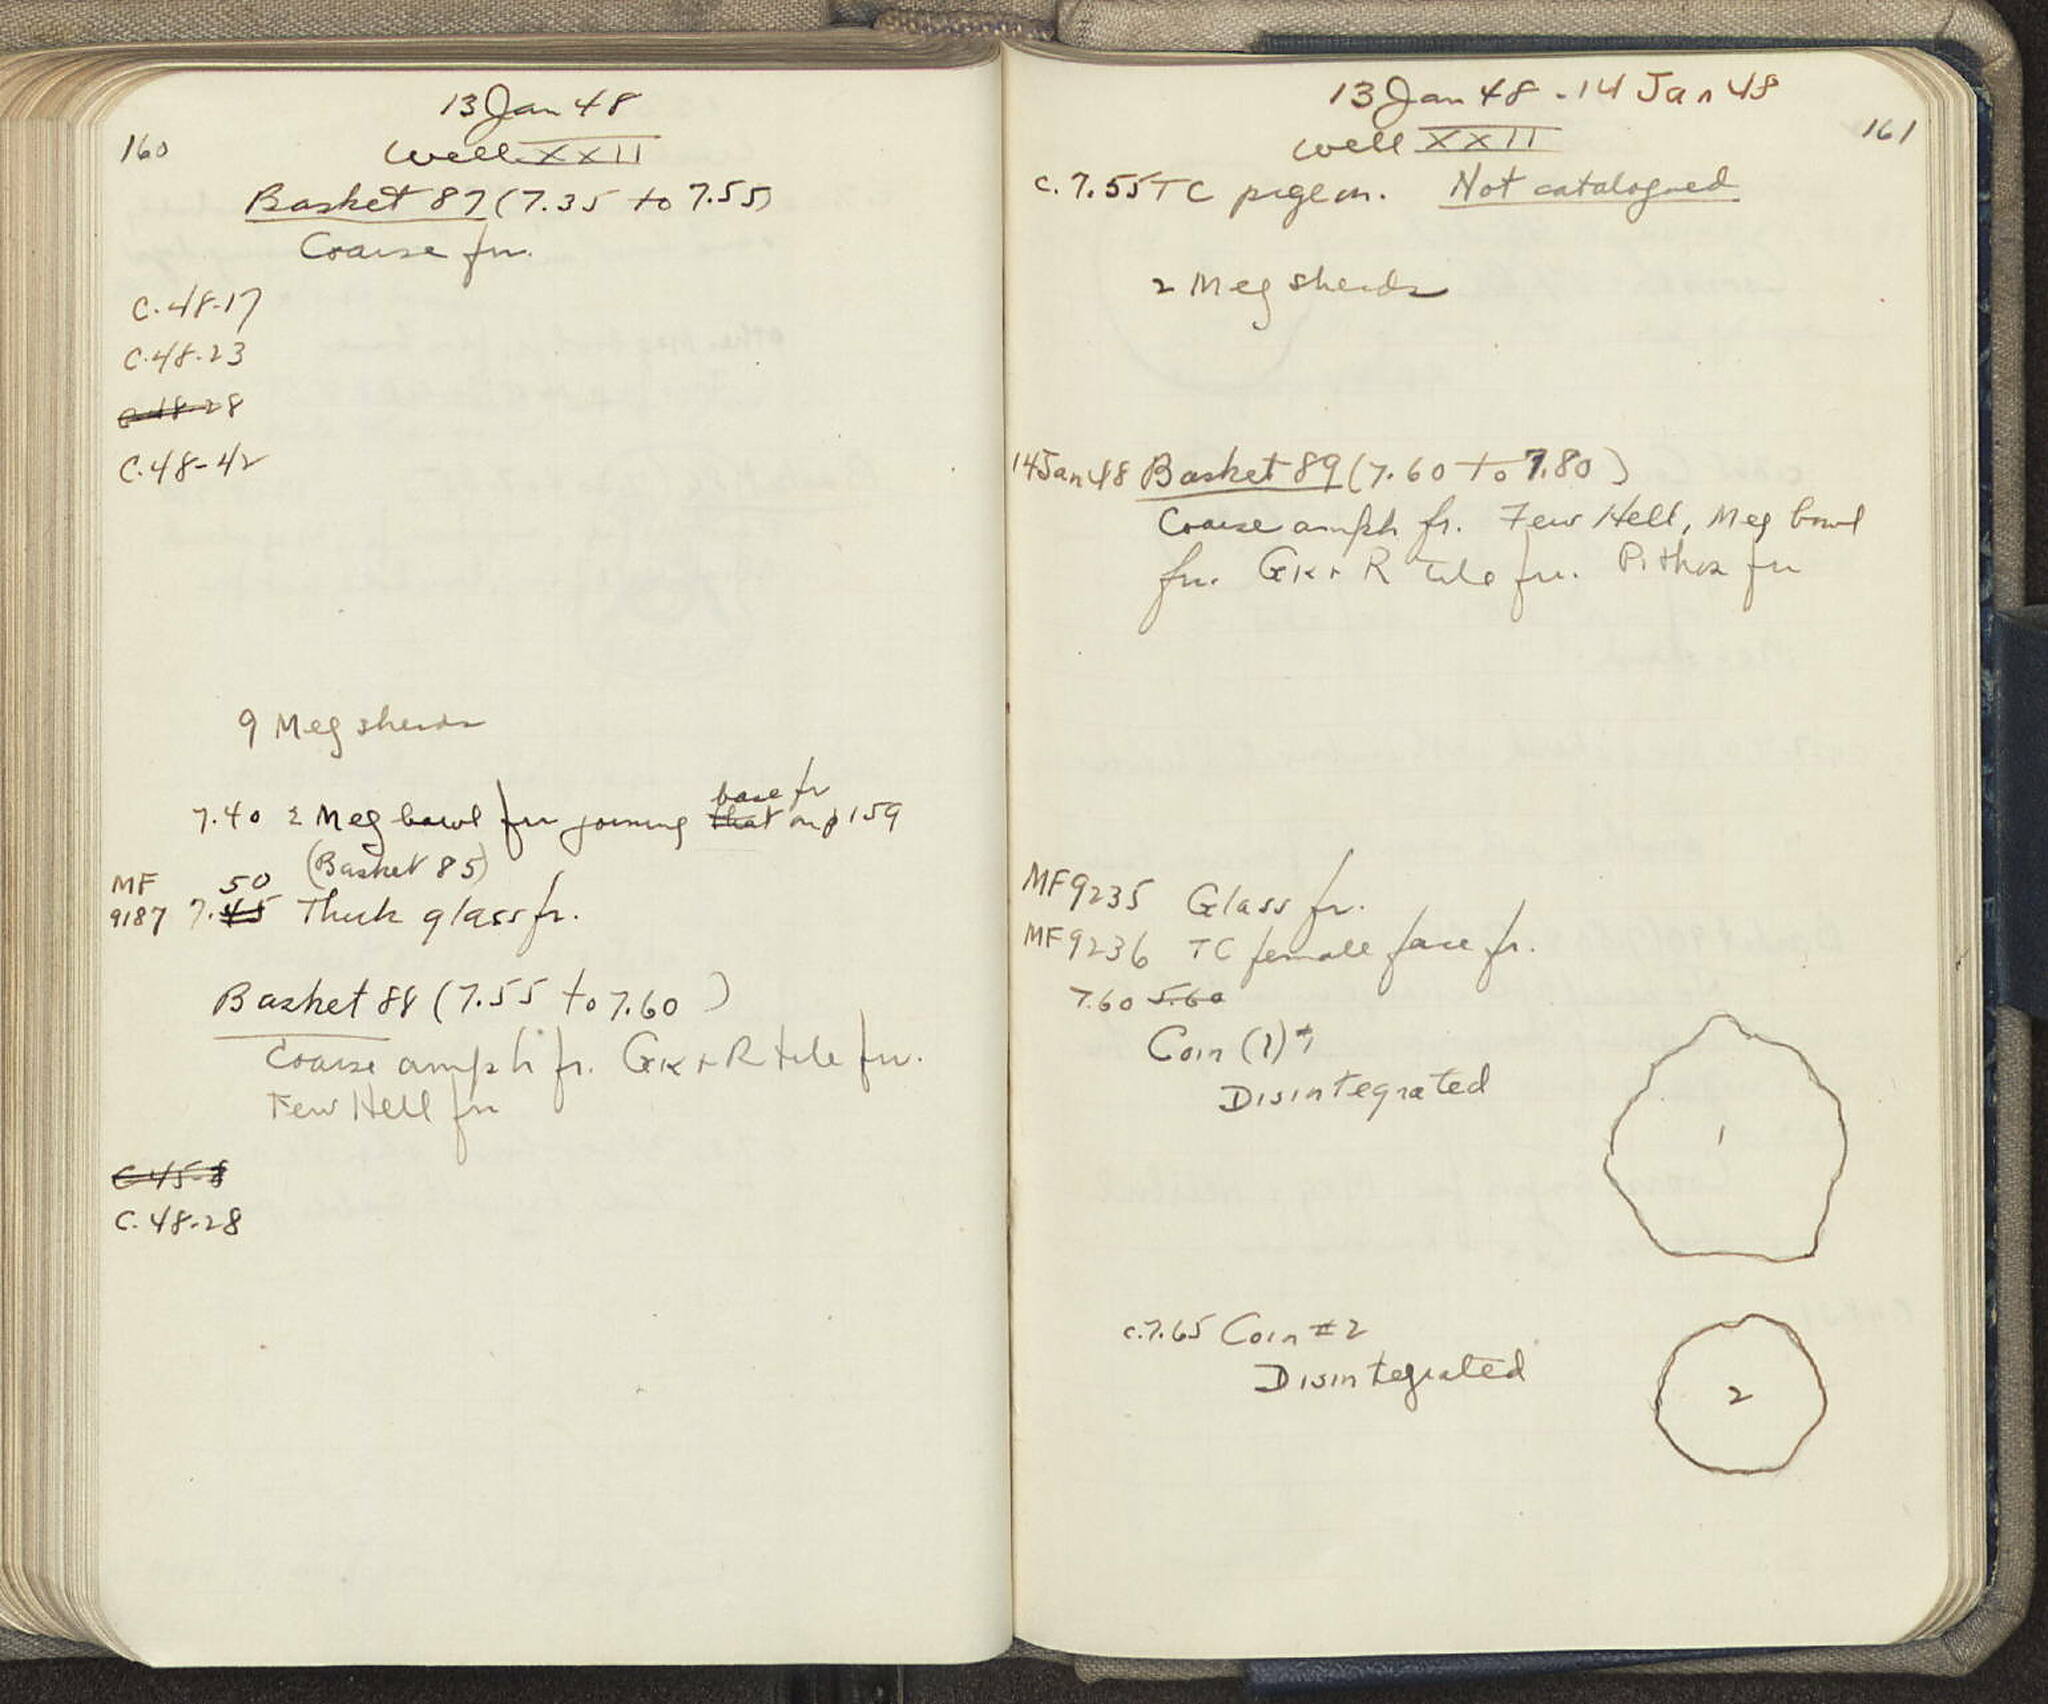 160
13 Jan 48
Well XXII
Basket 87 (7.35 to 7.55)
Coarse frr.
C.48-17
C.48-23
C-48-28
C.48-42
9 Meg sherds
base fr
7.40 2 Meg bowl frr joining that on p 159
(Basket 85)
MF 50
9187 7.45 Thick glass fr.
Basket 88 (7.55 to 7.60)
Coarse amph fr. Gk + R tile frr.
Few Hell frr
C 45-8
C.48-28
13 Jan 48 - 14 Jan 48
161
Well XXII
c. 7.55 TC pigeon. Not catalogued
2 Meg sherds
14 Jan 48 Basket 89 (7.60 to 7.80)
Coarse amph fr. Few Hell, Meg bowl
frr. Gk + R tile frr. Pithos frr
MF9235 Glass fr.
MF9236 TC female face fr.
7.60 5.60
Coin (?) #1
Disintegrated
1
c.7.65 Coin #2
Disintegrated
2